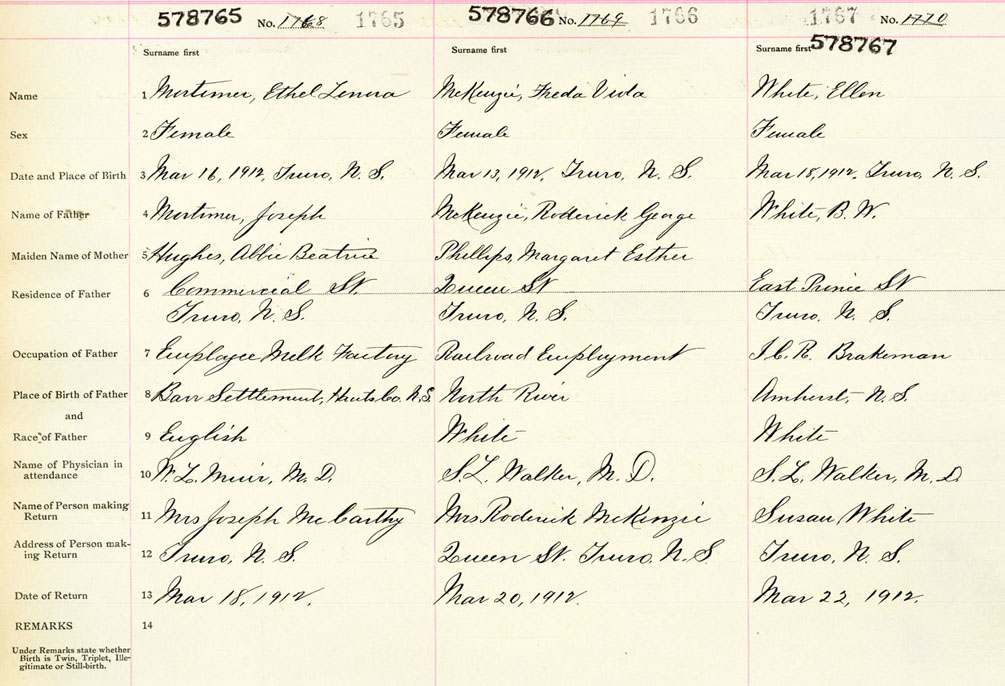 578765 No. 1768 1765 578766 No. 1769 1766 1767 No. 1770
578767
Surname first Surname first Surname first
Name 1 Mortimer, Ethel Lenora McKenzie, Freda Viola White, Ellen
Sex 2 Female Female Female
Date and Place of Birth 3 Mar 16, 1912, Truro, N. S. Mar 13, 1912. Truro, N. S. Mar 18, 1912. Truro, N. S.
Name of Father 4 Mortimer, Joseph McKenzie, Roderick George White, B. W.
Maiden Name of Mother 5 Hughes, Abbie Beatrice Phillips, Margaret Esther
Residence of Father 6 Commercial St. Queen St East Prince St
Truro, N. S. Truro, N. S. Truro, N. S.
Occupation of Father 7 Employee Milk Factory Railroad Employment I. C. R. Brakeman
Place of Birth of Father 8 Barr Settlement, Hants Co. N.S. North River Amherst, N. S.
and
Race of Father 9 English White White
Name of Physician in
attendance 10 W. L. Muir, M. D. S. L. Walker, M. D. S. L. Walker, M. D
Name of Person making
Return 11 Mrs Joseph McCarthy Mrs Roderick McKenzie Susan White
Address of Person mak-
ing Return 12 Truro, N. S. Queen St. Truro, N. S. Truro, N. S.
Date of Return 13 Mar 18, 1912. Mar 20, 1912. Mar 22, 1912.
REMARKS 14
Under Remarks state whether
Birth is Twin, Triplet, Ille-
gitimate or Still-birth.